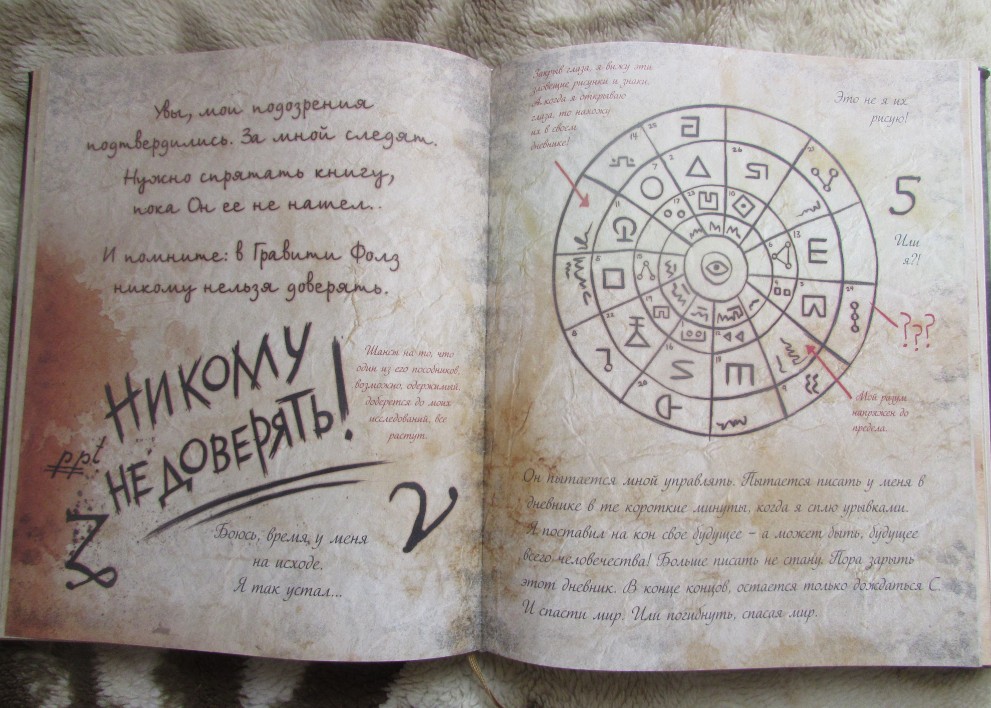 Увы, мои подозрения
подтвердились. За мной следят.
Нужно спрятать книгу,
пока Он ее не нашел..
И помните: в Гравити Фолз
никому нельзя доверять.
НИКОМУ
НЕ ДОВЕРЯТЬ!
Шансы на то, что
один из его пособников,
возможно, одержимый,
доберется до моих
исследований, все
растут.
ppt
Боюсь, время у меня
на исходе.
Я так устал...
Закрыв глаза, я вижу эти
зловещие рисунки и знаки.
А когда я открываю
глаза, то нахожу
их в своем
дневнике!
Это не я их
рисую!
5
Или
я?!
???
Мой разум
напряжен до
предела.
Он пытается мной управлять. Пытается писать у меня в
дневнике в те короткие минуты, когда я сплю урывками.
Я поставил на кон свое будущее – а может быть, будущее
всего человечества! Больше писать не стану. Пора зарыть
этот дневник. В конце концов, остается только дождаться С.
И спасти мир. Или погибнуть, спасая мир.